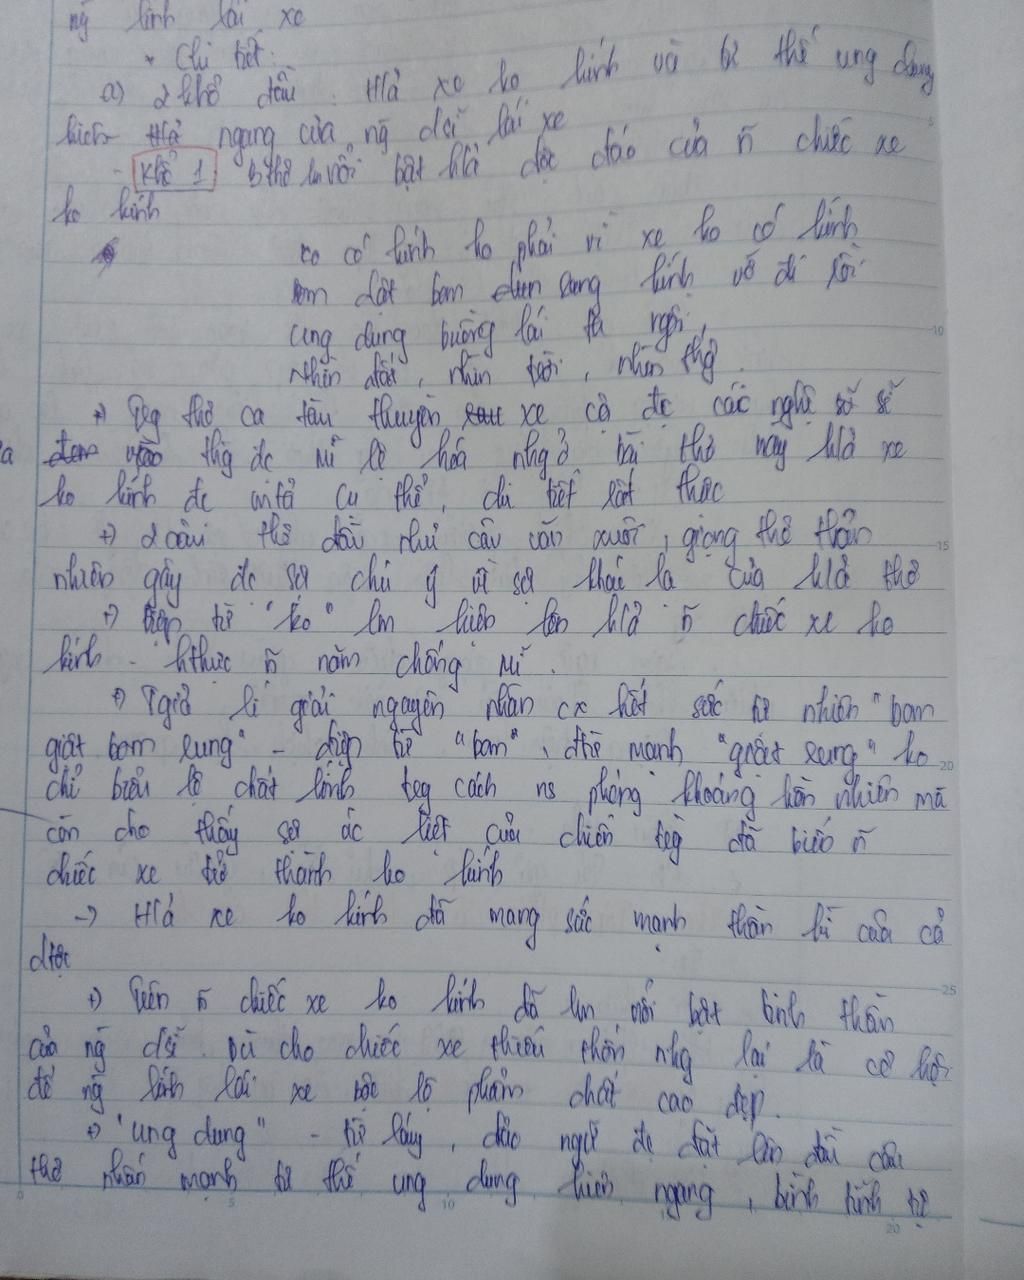 ng lính lái xe
* Chi tiết:
a) 2 khổ đầu. Hả xe ko kính và tư thế ung dung
hiên ngang của ng đối lái xe
- Khổ 1 bthơ lm nổi bật hả độc đáo của ~n chiếc xe
ko kính
ko có kính ko phải vì xe ko có kính
bom dật bom sung kính vỡ đi rồi
ung dung buồng lái ta ngồi,
nhìn đất, nhìn trời, nhìn thg.
+) Trg thơ ca tàu thuyền xe cộ đc các nghệ sĩ sẽ
thg đc mĩ lệ hoá nhg ở bài thơ này hả xe
ko kính đc mtả cụ thể, chi tiết rất thực
+) 2 câu thơ đầu như câu văn xuôi, giọng thơ thản
nhiên gây đc sự chú ý về sự khác lạ của hả thơ
+) điệp từ "ko" lm hiện lên hả ~n chiếc xe ko
kính - hthực ~n năm chống Mĩ.
+) Tgiả lí giải nguyên nhân cx hết sức tự nhiên "bom
giật bom rung" - điệp từ "bom", đtừ mạnh "giật rung" ko
chỉ biểu lộ chất lính trg cách ns phóng khoáng hồn nhiên mà
còn cho thấy sự ác liệt của chiến trg đã biến ~n
chiếc xe trở thành ko kính
-> Hả xe ko kính đã mang sức mạnh thần kì của cả
dtộc
+) Trên ~n chiếc xe ko kính đã lm nổi bật tinh thần
của ng đội. Dù cho chiếc xe thiếu thốn nhg lại là cơ hội
để ng lính lái xe bộc lộ phẩm chất cao đẹp.
+) "ung dung" - từ láy, đảo ngữ đc đặt lên đầu câu
thơ nhấn mạnh tư thế ung dung hiên ngang, bình tĩnh tự